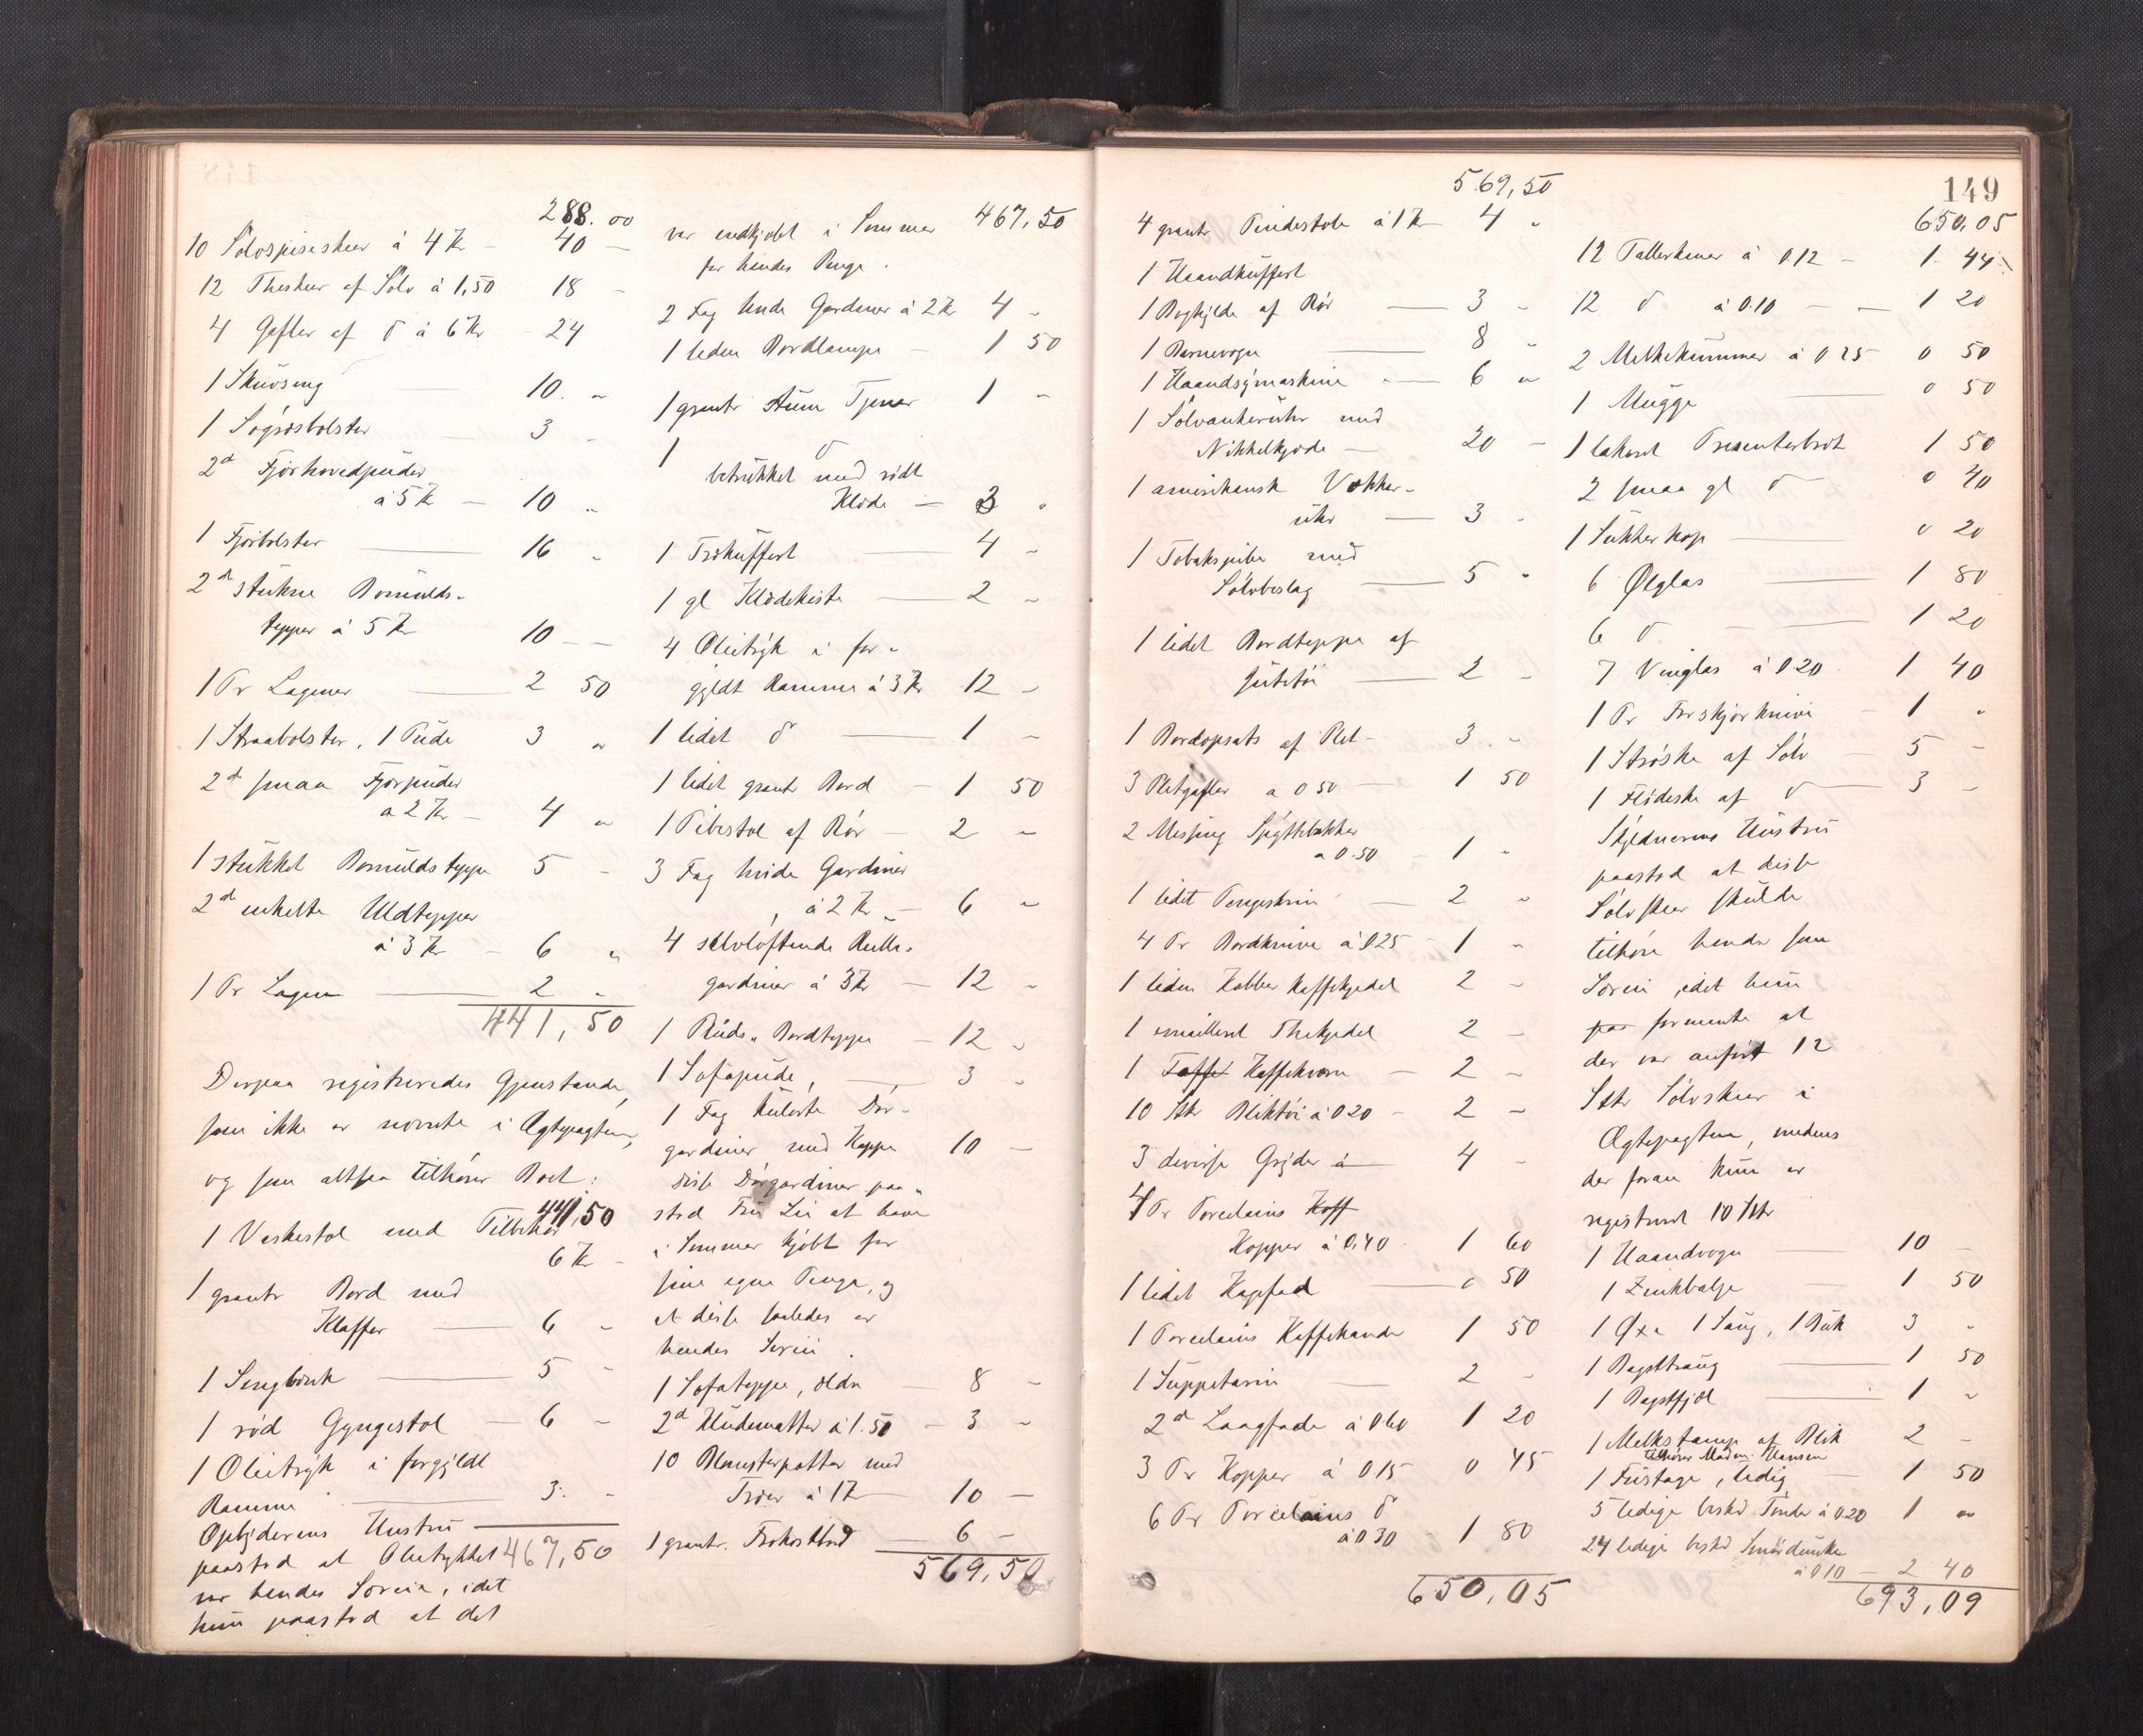 288.00
10 Sølvspiseskeer à 4 Kr – 40 –
12 Theskeer af Sølv à 1,50 18 –
4 Gafler af do à 6 Kr – 24
1 Skuvseng — 10. „
1 Søgræsbolster — 3 „
2de Fjørhovedpuder
à 5 Kr — 10 „
1 Fjørbolster — 16 „
2de stukne Bomulds-
tepper à 5 Kr 10 —
1 Pr Lagener — 2 50
1 Straabolster, 1 Pude 3 „
2de smaa Fjørpuder
a 2 Kr – 4 „
1 stukket Bomuldsteppe 5 –
2de enkelte Uldtepper
à 3 Kr – 6 „
1 Pr Lagen — 2 „
441,50
Derpaa registreredes Gjenstande,
som ikke er nævnte i Ægtepagten,
og som altsaa tilhører Boet:
441,50
1 Vaskestol med Tilbehør
6 Kr –
1 grantr Bord med
Klaffer — 6 „
1 Sengbænk — 5 „
1 rød Gyngestol – 6 „
1 Olietryk i forgyldt
Ramme — 3. „
Opbyderens Hustru
paastod at Olietrykket 467,50
var hendes Særeie, idet
hun paastod at det
467,50
var indkjøbt i Sommer
for hendes Penge.
2 Fag hvide Gardiner à 2 Kr 4 „
1 liden Bordlampe – 1 50
1 grantr stum Tjener 1 „
1 do
betrukket med rødt
Klæde — 3 „
1 Trækuffert 4 „
1 gl Klædekiste — 2 „
4 Olietryk i for-
gyldt Ramme à 3 Kr 12 „
1 lidet do — 1 „
1 lidet grantr Bord – 1 50
1 Pibestol af Rør – 2 „
3 Fag hvide Gardiner
à 2 Kr – 6 „
4 selvløftende Rulle-
gardiner à 3 Kr – 12 „
1 Plüds- Bordteppe – 12 „
1 Sofapude, — 3 „
1 Fag kulørte Dør-
gardiner med Kappe 10 –
disse Dørgardiner paa-
stod Fru Lie at have
i Sommer kjøbt for
sine egne Penge, og
at disse saaledes er
hendes Særeie.
1 Sofateppe, ældre 8 –
2de Kludematter à 1.50 – 3 „
10 Blomsterpotter med
Træer à 1 Kr 10 –
1 grantr. Frokostbord 6 –
569,50
149
569,50
4 grantr Pindestole à 1 Kr 4 „
1 Haandkuffert
1 Boghylde af Rør — 3 „
1 Barnevogn — 8 „
1 Haandsymaskine – 6 „
1 Sølvankeruhr med
Nikkelkjæde – 20 –
1 amerikansk Vækker-
uhr — 3 „
1 Tobakspibe med
Sølvbeslag — 5 „
1 lidet Bordteppe af
Jutetøi — 2 „
1 Bordopsats af Plet – 3. „
3 Pletgafler a 0 50 – 1 50
2 Messing Spyttebakker
a 0.50 – 1 „
1 lidet Pengeskrin — 2 „
4 Pr Bordknive à 0.25 – 1 „
1 liden Kobber Kaffekjedel 2 „
1 emailleret Thekjedel 2 –
1 Kaffekværn – 2 „
10 Stk Bliktøi à 0 20 – 2 „
3 diverse Gryder à 4 „
4 Pr Porcelains Koff
Kopper à 0,40 1 60
1 lidet Kagefad — 0 50
1 Porcelains Kaffekande 1 50
1 Suppeterrin — 2 „
2de Laagfade à 0 60 1 20
3 Pr Kopper à 0 15 0 45
6 Pr Porcelains do
à 0 30 – 1 80
650,05
650,05
12 Tallerkener à 0.12 – 1 44
12 do à 0.10 – 1 20
2 Melkekummer à 0 25 0 50
1 Mugge — 0 50
1 lakeret Presenterbræt 1 50
2 smaa gl do 0 40
1 Sukkerkop — 0 20
6 Ølglas — 1 80
6 do — 1 20
7 Vinglas à 0.20 1 40
1 Pr Forskjærknive – 1 „
1 Strøske af Sølv – 5 –
1 Flødeske af do — 3 „
Skyldnerens Hustru
paastod at disse
Sølvskeer skulde
tilhøre hende som
Særeie, idet hun
paa formente at
der var anført 12
Stkr Sølvskeer i
Ægtepagten, medens
der foran kun er
registreret 10 Stkr
1 Haandvogn — 10 –
1 Zinkbalje — 1 50
1 Øxe 1 Saug, 1 Buk 3 „
1 Bagsttraug — 1 50
1 Bagstfjøl — 1 „
1 Melkstamp af Blik 2 –
tilhører Madm. Hansen
1 Fustage, ledig — 1 50
5 ledige beskd Tønder à 0.20 1 „
24 ledige beskd Smørdunke
à 0.10 – 2 40
693,09